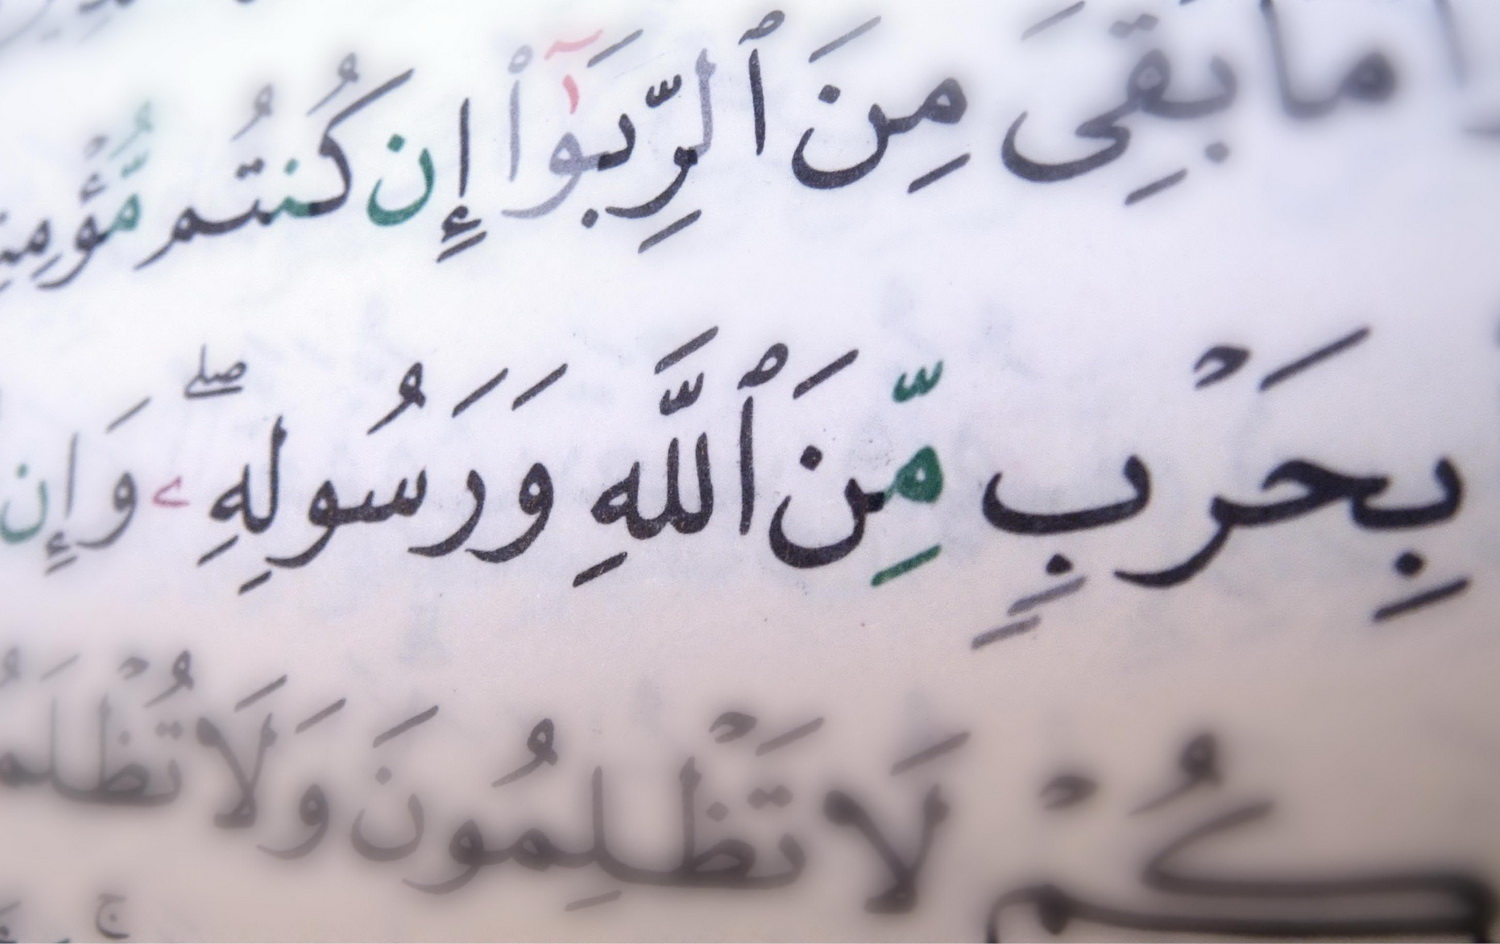 مَا بَقِىَ مِنَ ٱلرِّبَوٰٓا۟ إِن كُنتُم مُّؤْمِنِ
بِحَرْبٍ مِّنَ ٱللَّهِ وَرَسُولِهِۦ ۖ وَإِن
كُمْ لَا تَظْلِمُونَ وَلَا تُظْلَمُ
ج